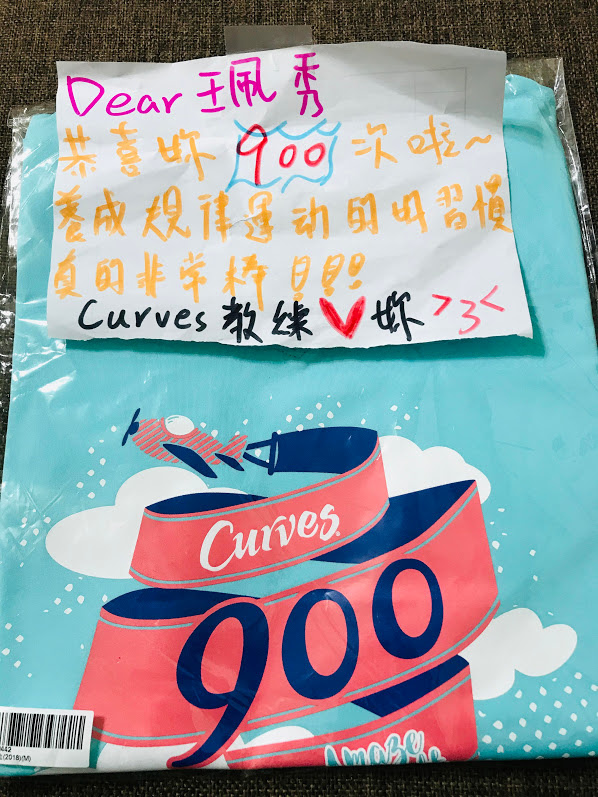 Dear 珮秀
恭喜妳 900 次啦~
養成規律運动的好習慣
真的非常棒!!!!
Curves 教練 ♥ 妳 >3<
Curves
900
Amaze
442
(2018)(M)